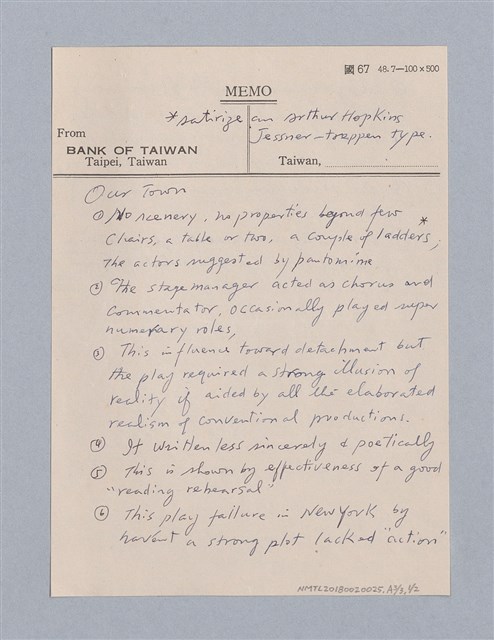 國 67 48.7—100×500
MEMO
*satirize an Arthur Hopkins
Jessner-treppen type.
From
BANK OF TAIWAN
Taipei, Taiwan
Taiwan,
Our Town
① No scenery, no properties beyond few
chairs, a table or two, a couple of ladders*,
The actors suggested by pantomime
② The stage manager acted as chorus and
commentator, occasionally played super
numerary roles,
③ This influence toward detachment but
the play required a strong illusion of
reality if aided by all the elaborated
realism of conventional productions.
④ If written less sincerely & poetically
⑤ This is shown by effectiveness of a good
"reading rehearsal"
⑥ This play failure in New York by
haven't a strong plot lacked "action"
NMTL20180020025, A2/3, 1/2